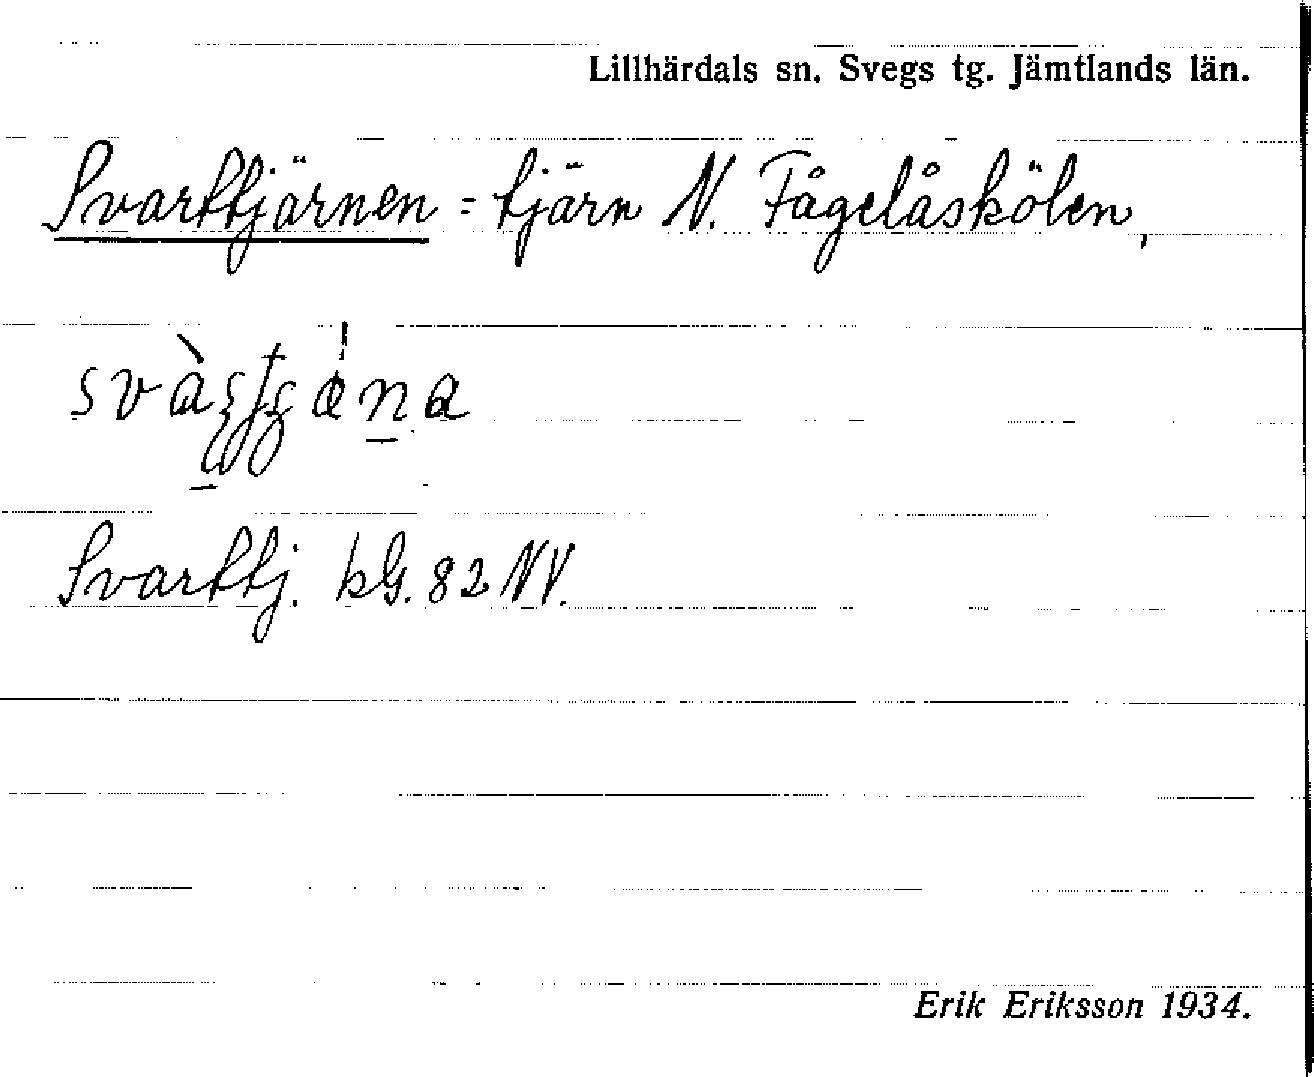 Lillhärdals sn. Svegs tg. Jämtlands län.
Svarttjärnen = tjärn N. Fågelåskölen,
Svarttj. kG. 82 NV.
Erik Eriksson 1934.